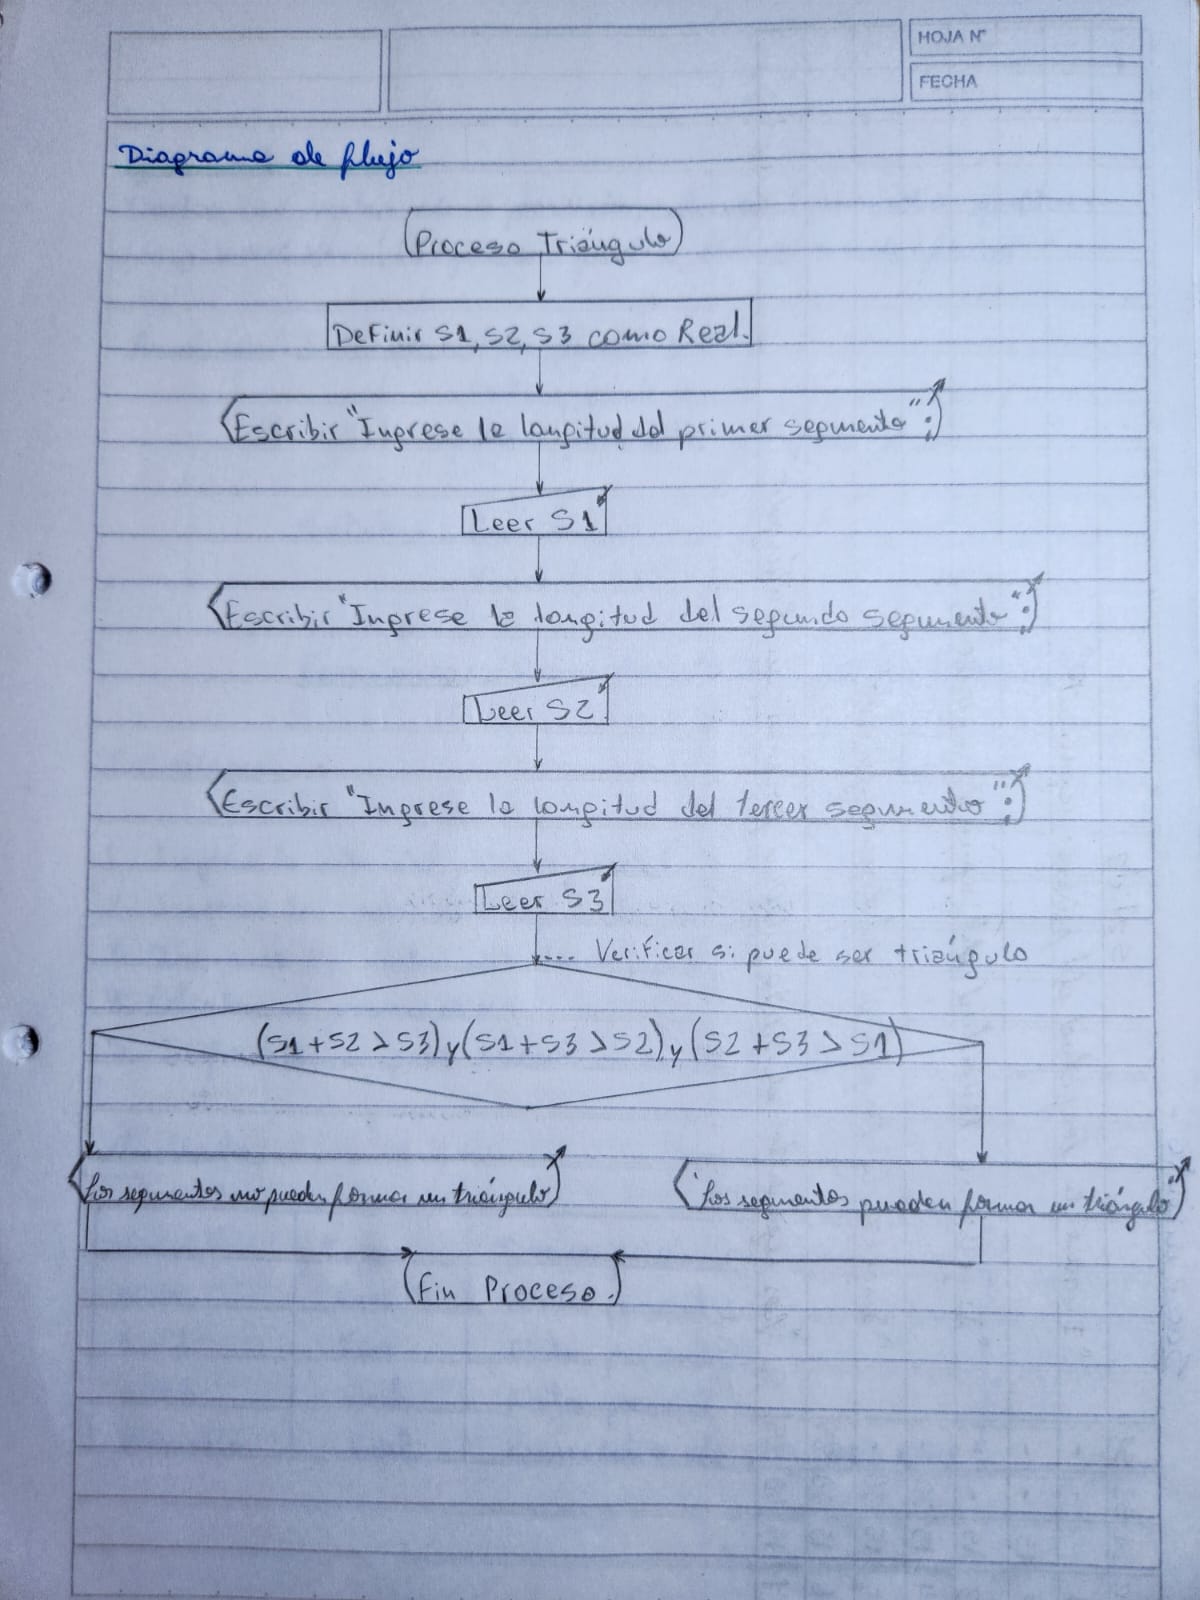 HOJA N°
FECHA
Diagrama de flujo
Proceso Triángulo
Definir S1, S2, S3 como Real.
Escribir "Ingrese la longitud del primer segmento";
Leer S1
Escribir "Ingrese la longitud del segundo segmento";
Leer S2
Escribir "Ingrese la longitud del tercer segmento";
Leer S3
.... Verificar si puede ser triángulo
(S1+S2>S3) y (S1+S3>S2) y (S2+S3>S1)
Los segmentos no pueden formar un triángulo
"Los segmentos pueden formar un triángulo"
Fin Proceso.